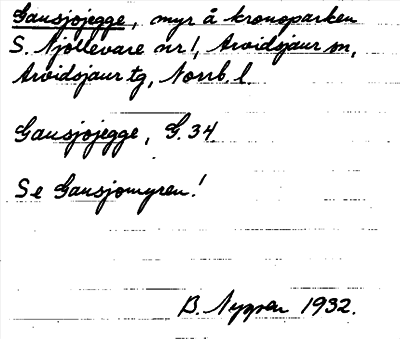 Gausjojegge, myr å kronoparken
S. Njallevare nr 1, Arvidsjaur sn,
Arvidsjaur tg, Norrb. l.
Gausjojegge, G. 34
Se Gausjomyren!
B. Nygren 1932.